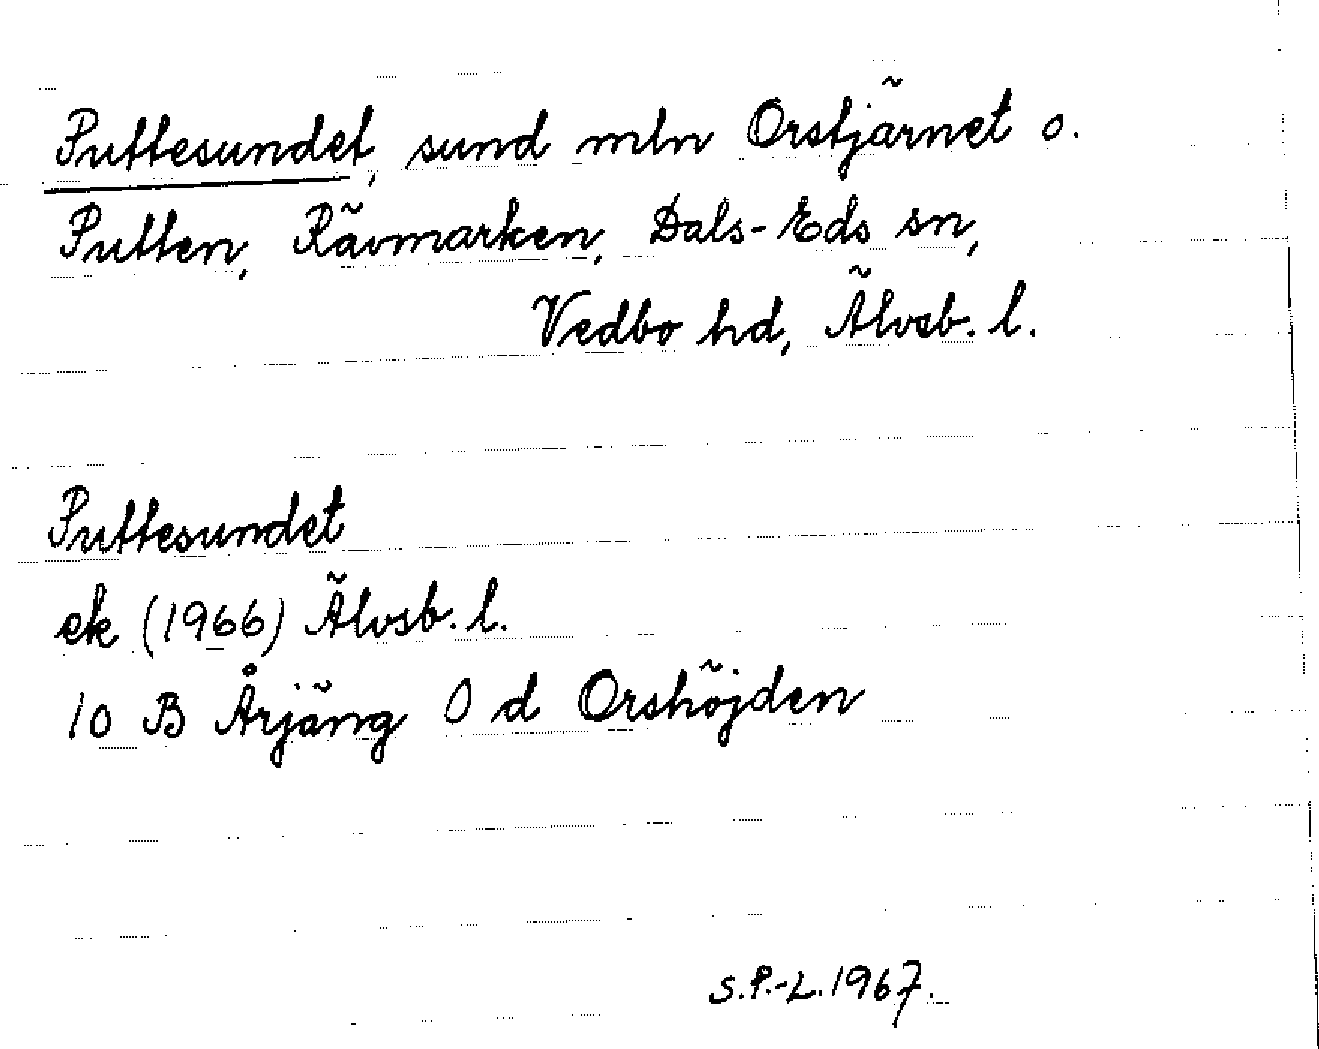 Puttesundet, sund mln Orstjärnet o.
Putten, Rävmarken, Dals-Eds sn,
Vedbo hd, Älvsb. l.
Puttesundet
ek (1966) Älvsb. l.
10 B Årjäng 0 d Orshöjden
S.P.-L. 1967.